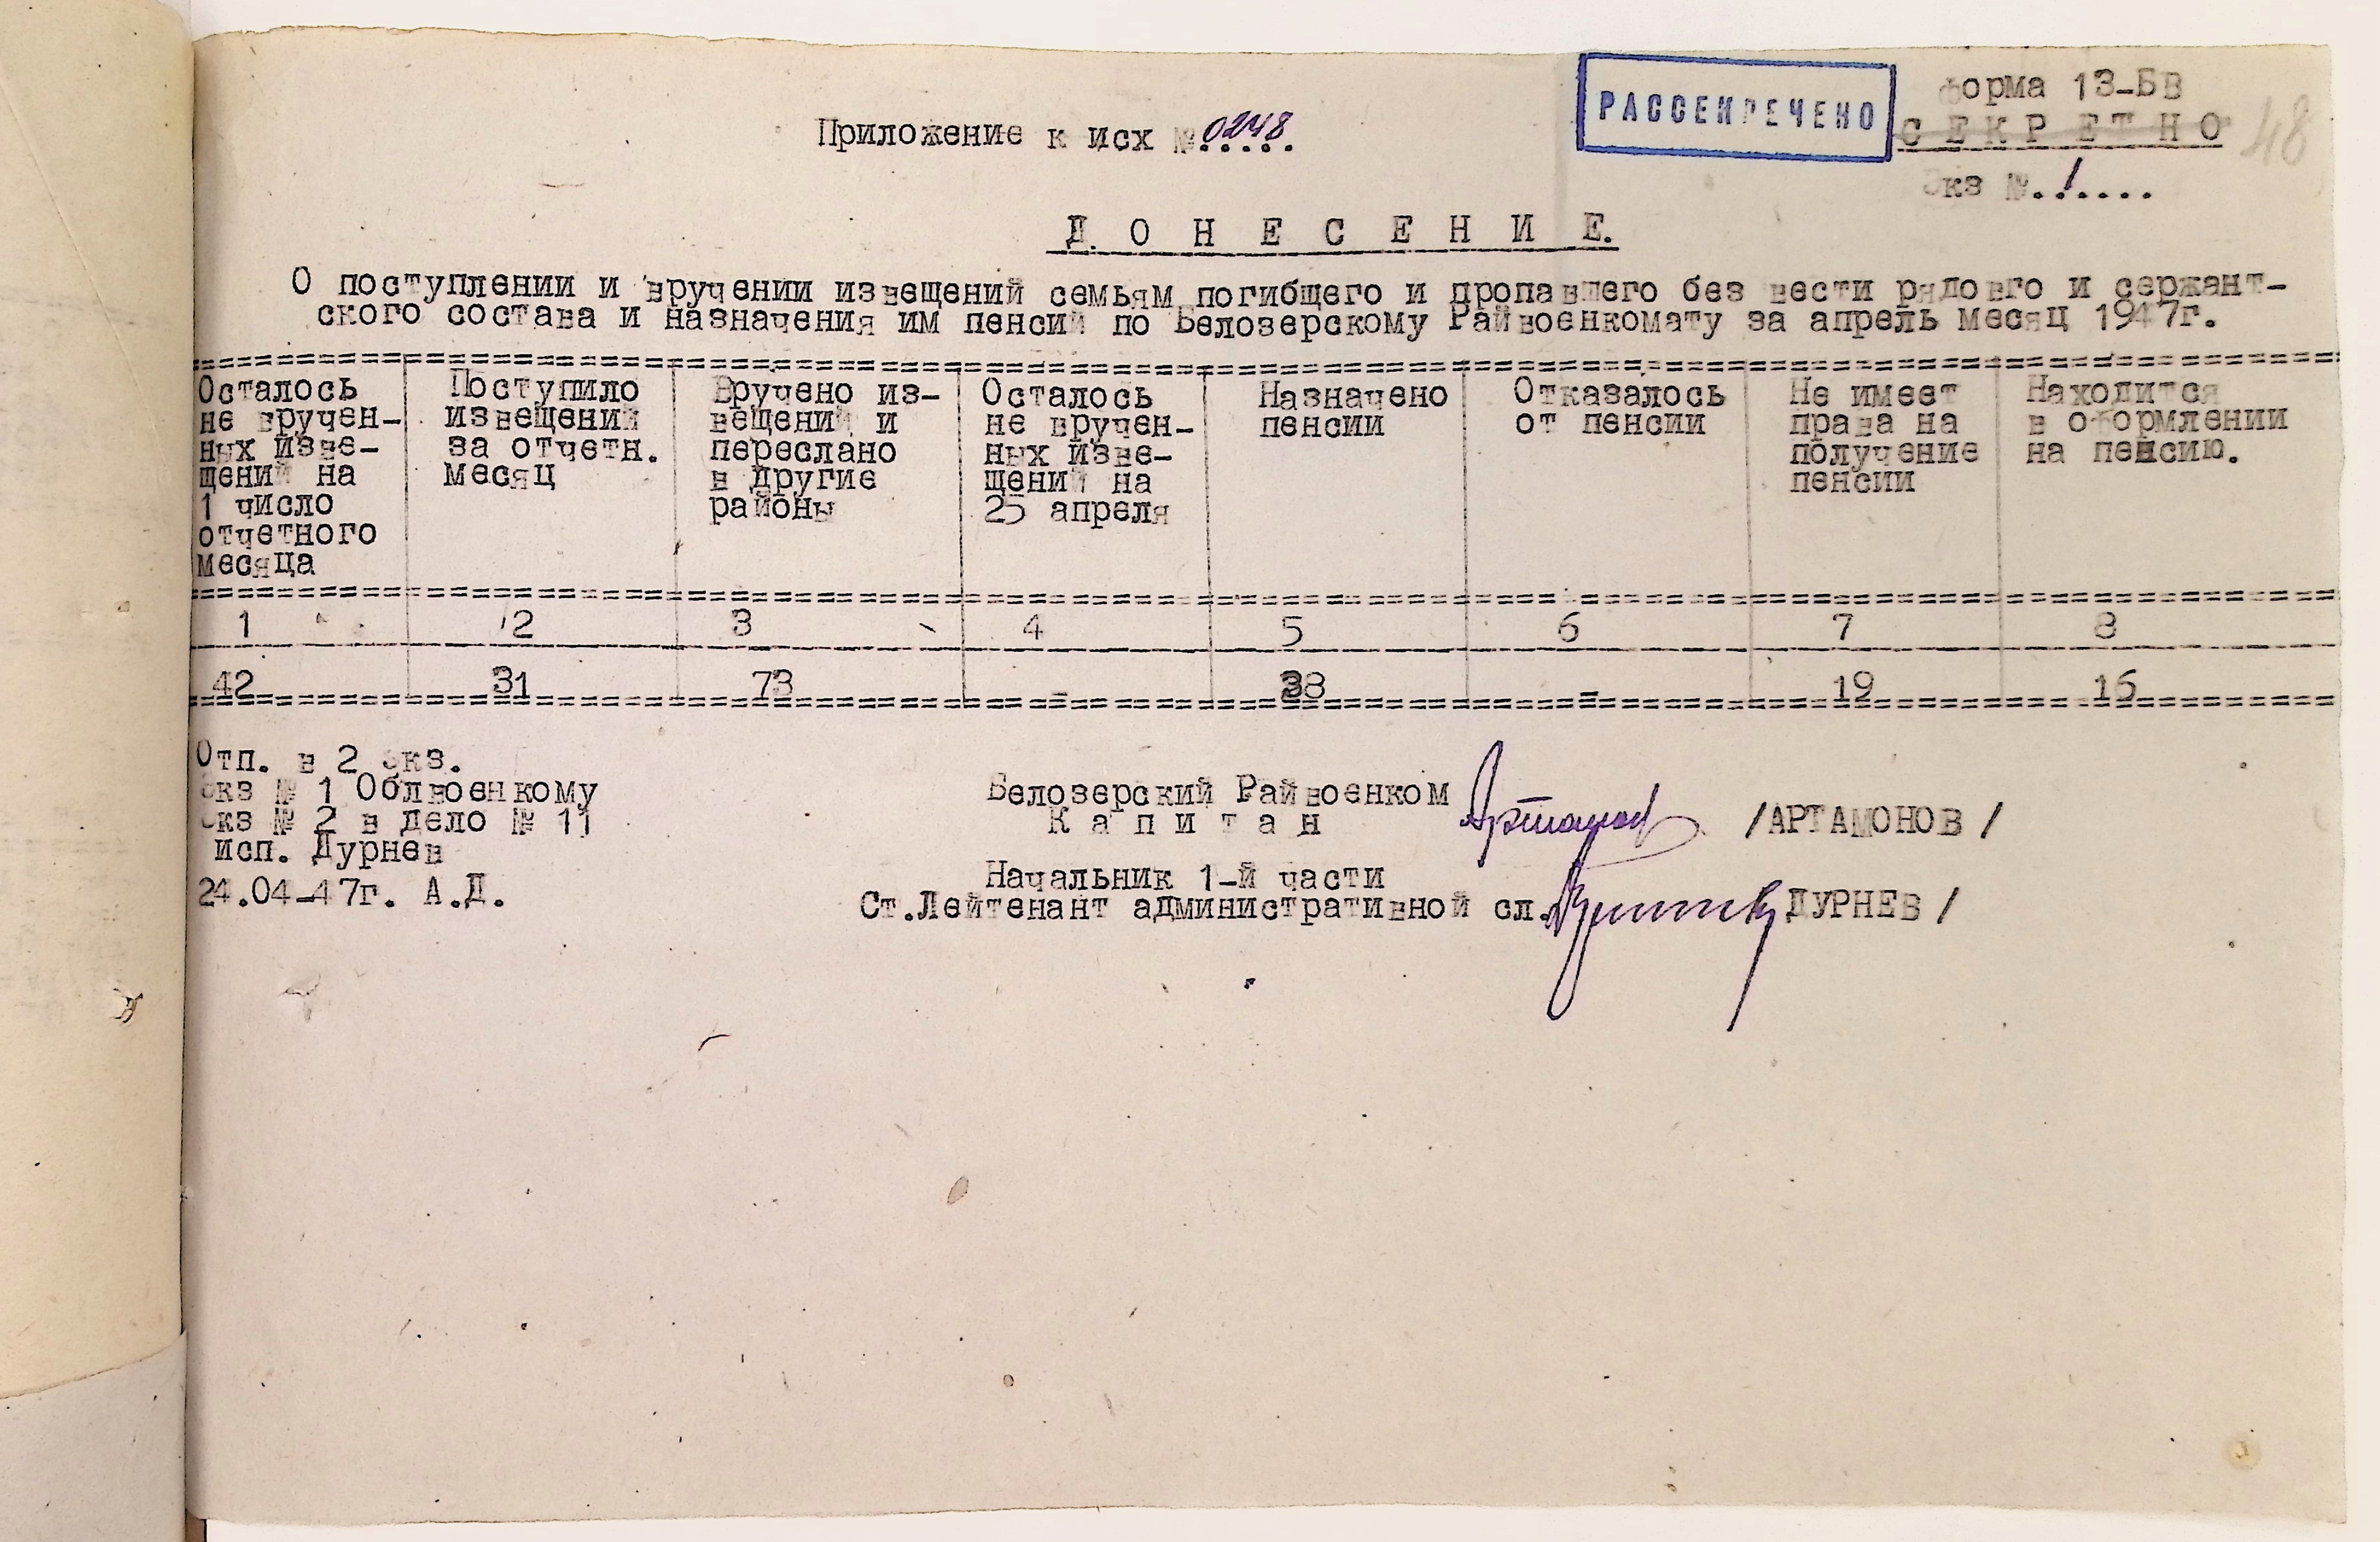 РАССЕКРЕЧЕНО
форма 13-БВ
Приложение к исх №.0248.
СЕКРЕТНО
48
Экз №.1....
ДОНЕСЕНИЕ.
О поступлении и вручении извещений семьям погибщего и пропавшего без вести рядовго и сержант-
ского состава и назначения им пенсий по Белозерскому Райвоенкомату за апрель месяц 1947г.
Осталось не вручен- ных изве- щений на 1 число отчетного месяца
Поступило извещений за отчетн. месяц
Вручено из- вещений и переслано в другие районы
Осталось не вручен- ных изве- щений на 25 апреля
Назначено пенсии
Отказалось от пенсии
Не имеет права на получение пенсии
Находится в оформлении на пенсию.
1 2 3 4 5 6 7 8
42 31 73 - 38 - 19 16
Отп. в 2 экз.
Экз № 1 Облвоенкому
Экз № 2 в дело № 11
исп. Дурнев
24.04-47г. А.Д.
Белозерский Райвоенком
Капитан Артамонов /АРТАМОНОВ/
Начальник 1-й части
Ст.Лейтенант административной сл. ДУРНЕВ/